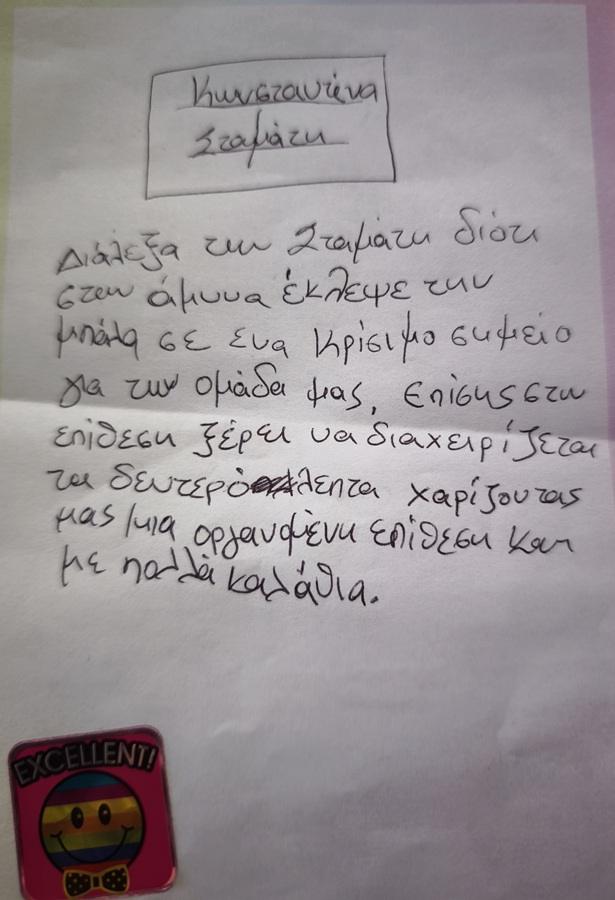 Κωνσταντίνα
Σταμάτη
Διάλεξα την Σταμάτη διότι
στην άμυνα έκλεψε την
μπάλα σε ενα κρίσιμο σημείο
για την ομάδα μας, Επίσης στην
επίθεση ξέρει να διαχειρίζεται
τα δευτερόλεπτα χαρίζοντας
μας μια οργανωμένη επίθεση και
με πολλά καλάθια.
EXCELLENT!